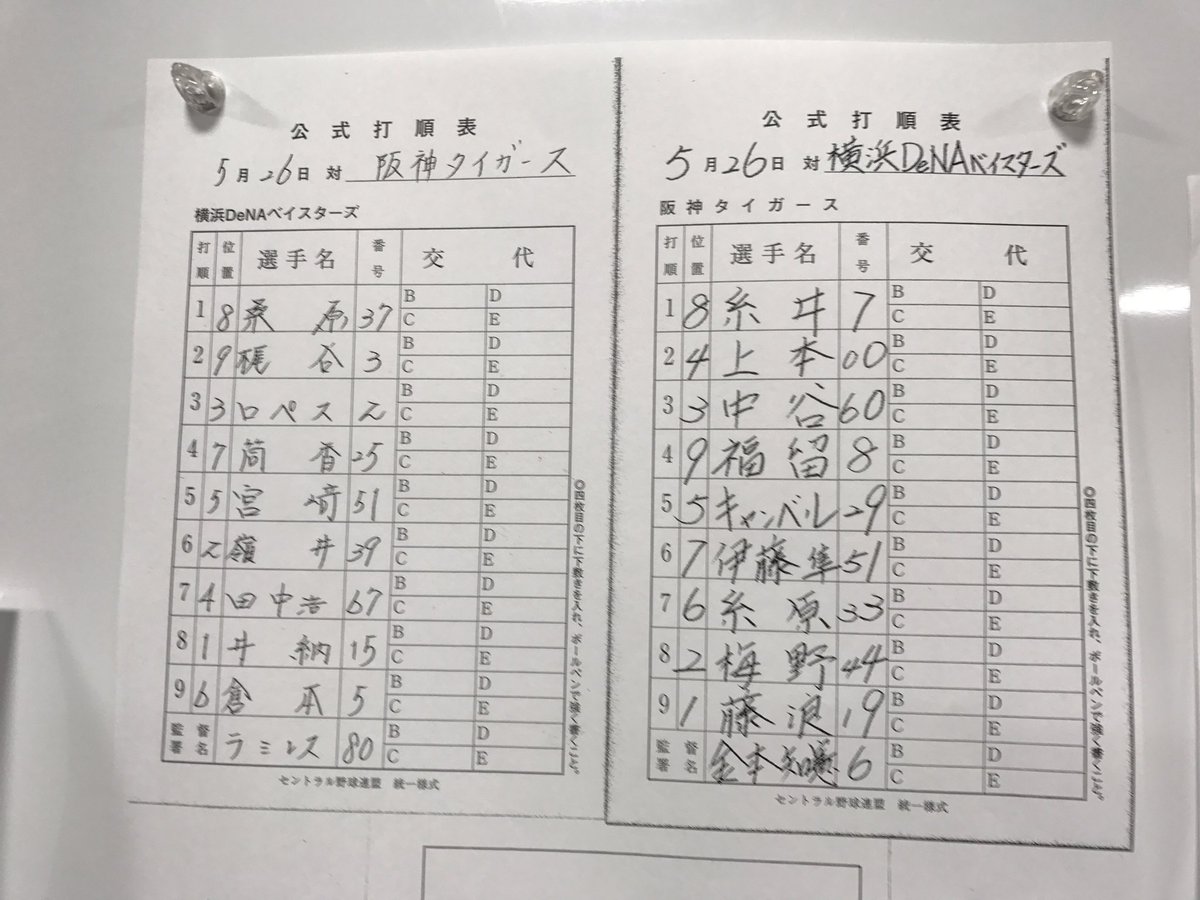 公式打順表
5月26日 対 阪神タイガース
横浜DeNAベイスターズ
打順 位置 選手名 番号 交代
1 8 桑原 37 B D C E
2 9 梶谷 3 B D C E
3 3 ロペス 2 B D C E
4 7 筒香 25 B D C E
5 5 宮﨑 51 B D C E
6 2 嶺井 39 B D C E
7 4 田中浩 67 B D C E
8 1 井納 15 B D C E
9 6 倉本 5 B D C E
監督署名 ラミレス 80 B D C E
セントラル野球連盟 統一様式
◎四枚目の下に下敷きを入れ、ボールペンで強く書くこと。
公式打順表
5月26日 対 横浜DeNAベイスターズ
阪神タイガース
打順 位置 選手名 番号 交代
1 8 糸井 7 B D C E
2 4 上本 00 B D C E
3 3 中谷 60 B D C E
4 9 福留 8 B D C E
5 5 キャンベル 29 B D C E
6 7 伊藤隼 51 B D C E
7 6 糸原 33 B D C E
8 2 梅野 44 B D C E
9 1 藤浪 19 B D C E
監督署名 金本知憲 6 B D C E
セントラル野球連盟 統一様式
◎四枚目の下に下敷きを入れ、ボールペンで強く書くこと。